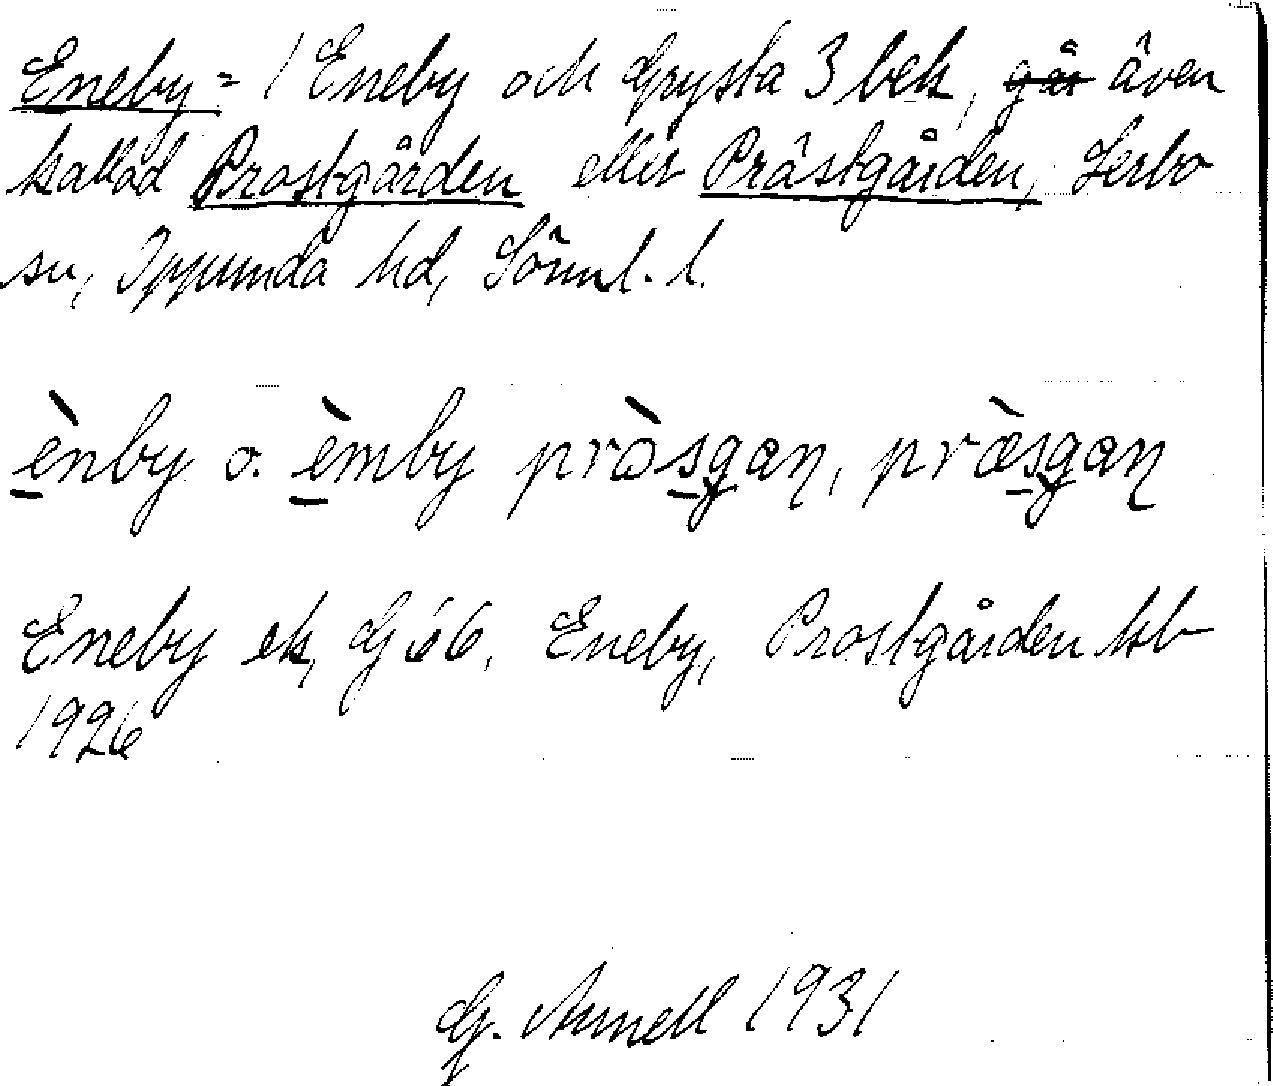 Eneby = 1 Eneby och Grysta 3 bek, går även
kallad Prostgården eller Prästgården, Lerbo
sn, Oppunda hd, Sörml. l.
ènby o. èmby pròsgaṇ, præ̀sgaṇ
Eneby ek, G 66, Eneby, Prostgården kb
1926
G. Arnell 1931